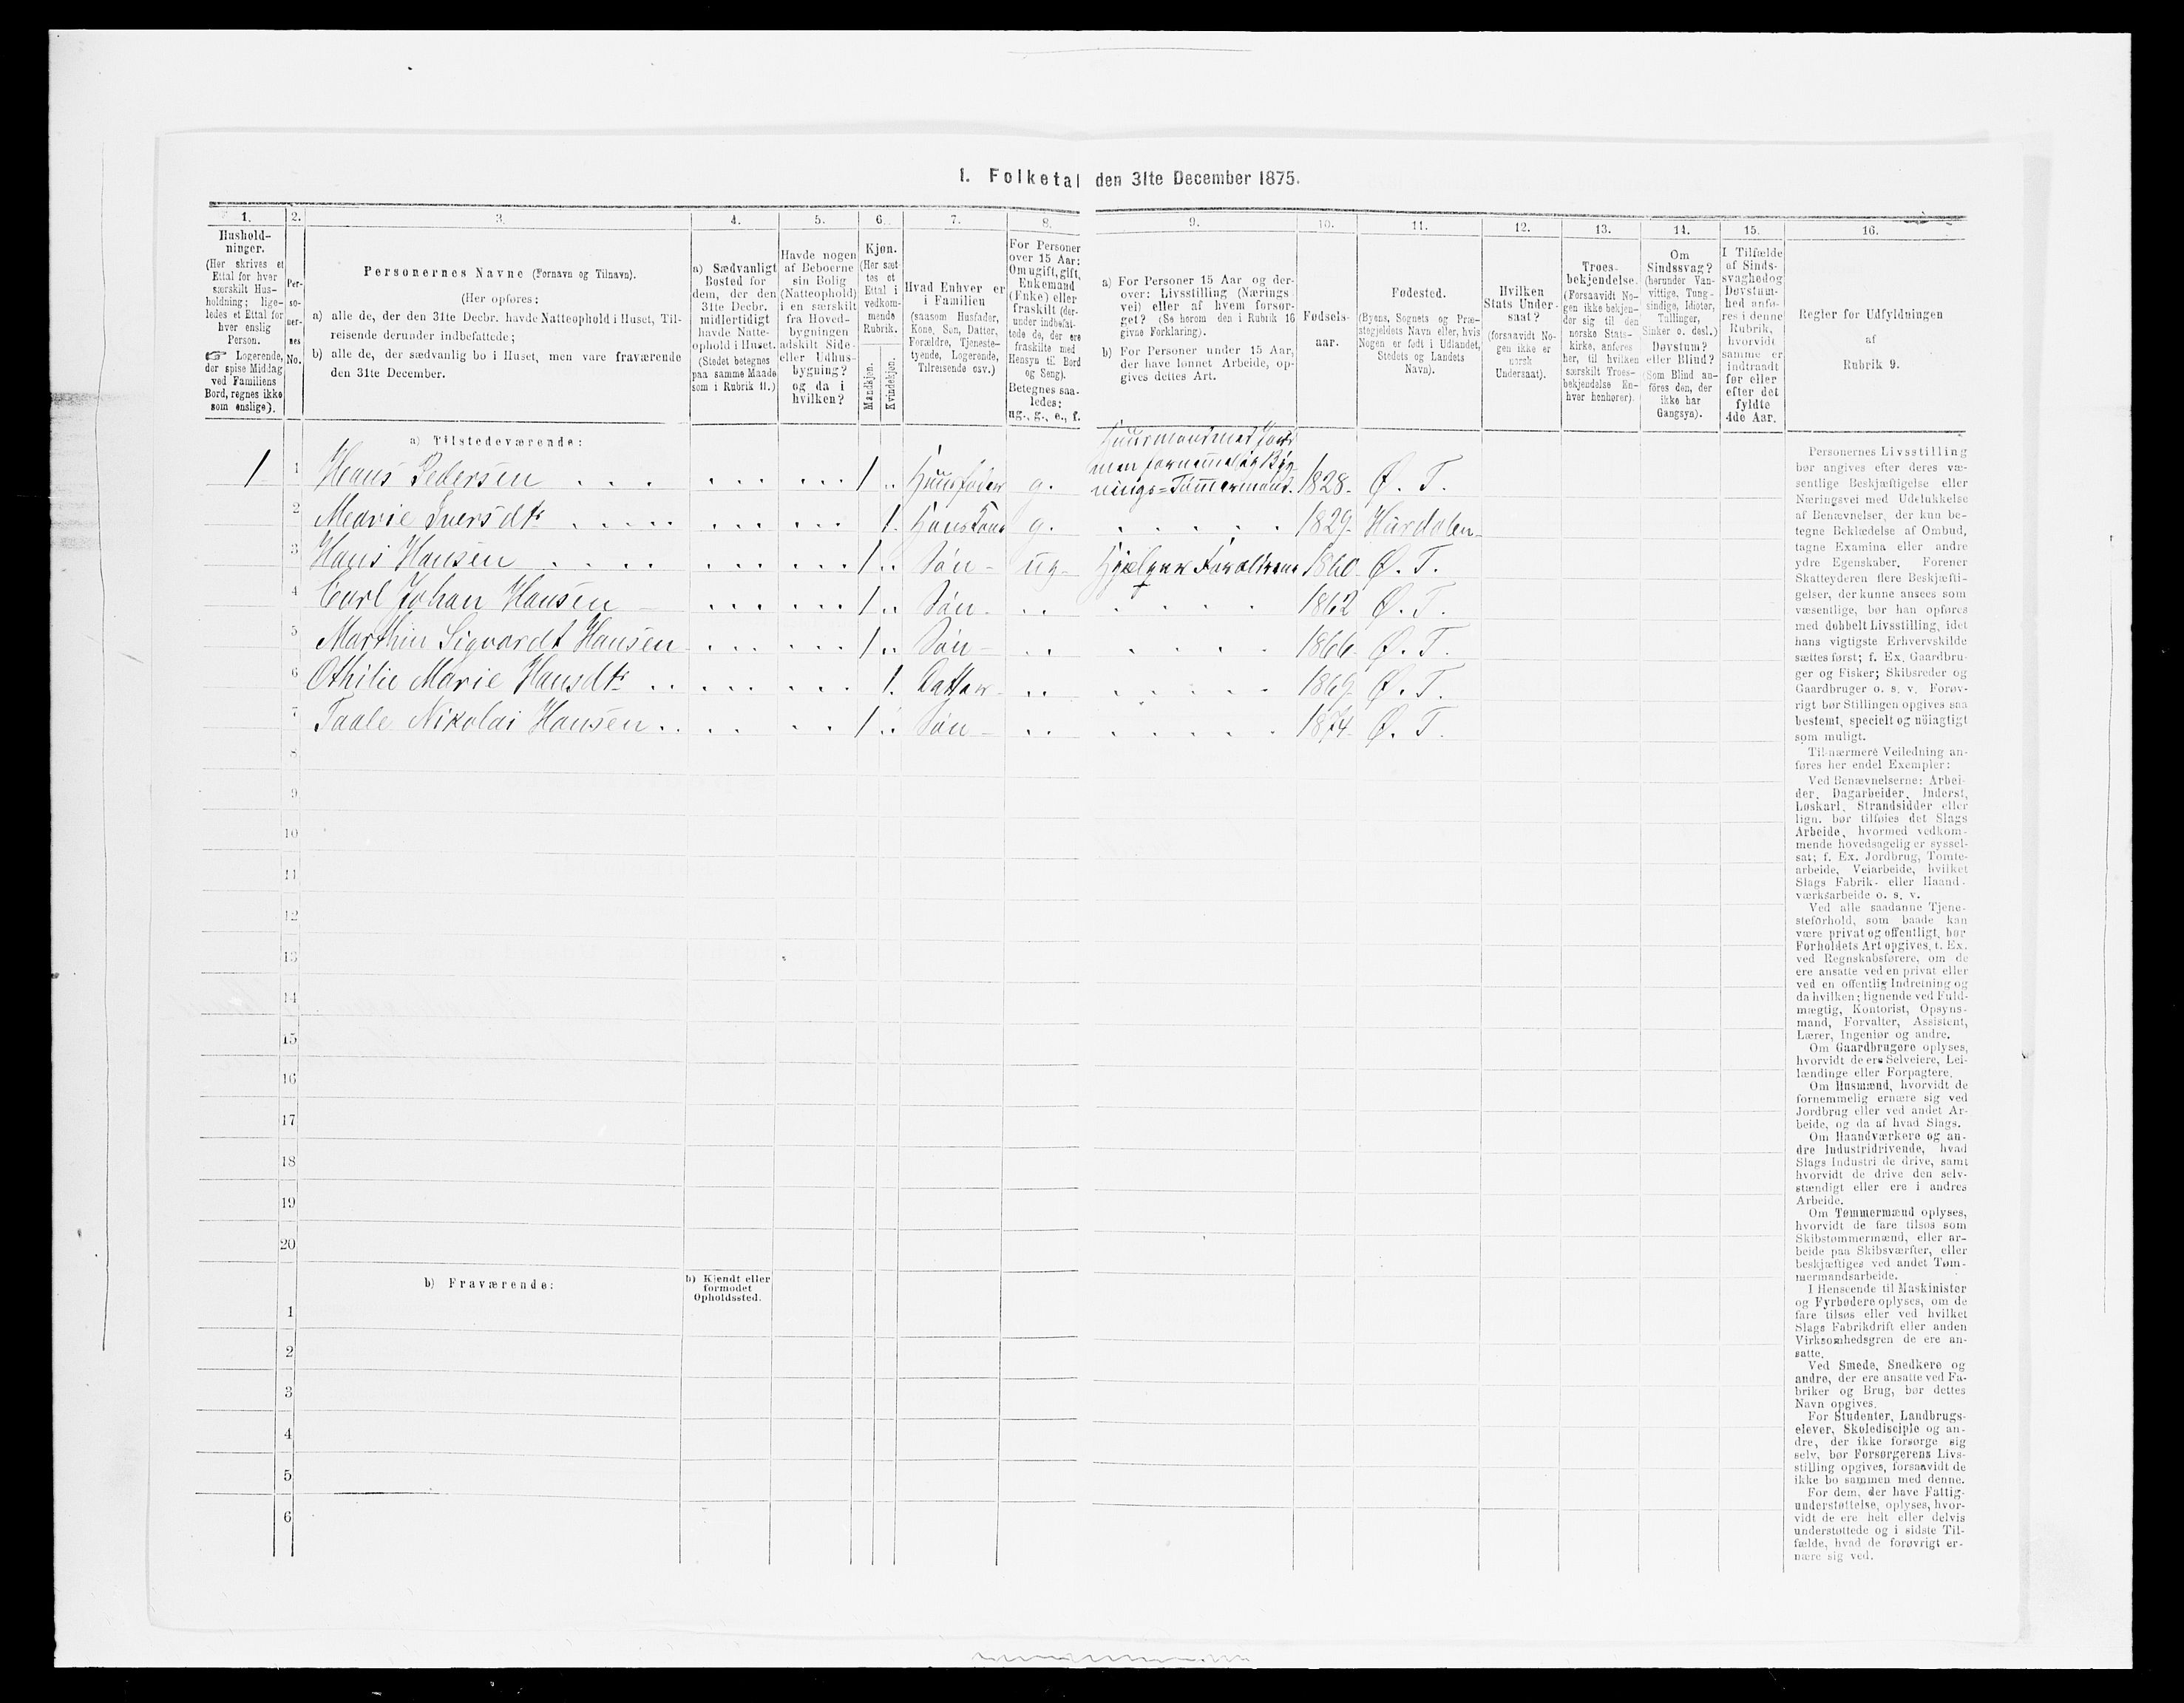 I. Folketal den 31te December 1875.
1.
Hushold-
ninger.
(Her skrives et
Ettal for hver
særskilt Hus-
holdning; lige-
ledes et Ettal for
hver enslig
Person.
☞ Logerende,
der spise Middag
ved Familiens
Bord, regnes ikke
som enslige).
2.
Per-
so-
ner-
nes
No.
3.
Personernes Navne (Fornavn og Tilnavn).
(Her opføres:
a) alle de, der den 31te Decbr. havde Natteophold i Huset, Til-
reisende derunder indbefattede;
b) alle de, der sædvanlig bo i Huset, men vare fraværende
den 31te December.
4.
a) Sædvanligt
Bosted for
dem, der den
31te Decbr.
midlertidigt
havde Natte-
ophold i Huset.
(Stedet betegnes
paa samme Maade
som i Rubrik 11.)
5.
Havde nogen
af Beboerne
sin Bolig
(Natteophold)
i en særskilt
fra Hoved-
bygningen
adskilt Side-
eller Udhus-
bygning?
og da i
hvilken?
6.
Kjøn.
(Her sæt-
tes et
Ettal i
vedkom-
mende
Rubrik.
Mandkjøn.
Kvindekjøn.
7.
Hvad Enhver er
i Familien
(saasom Husfader,
Kone, Søn, Datter,
Forældre, Tjeneste-
tyende, Logerende,
Tilreisende osv.)
8.
For Personer
over 15 Aar:
Om ugift, gift,
Enkemand
(Enke) eller
fraskilt (der-
under indbefat-
tede de, der ere
fraskilte med
Hensyn til Bord
og Seng).
Betegnes saa-
ledes:
ug., g., e., f.
9.
a) For Personer 15 Aar og der-
over: Livsstilling (Nærings-
vei) eller af hvem forsør-
get? (Se herom den i Rubrik 16
givne Forklaring).
b) For Personer under 15 Aar,
der have lønnet Arbeide, op-
gives dettes Art.
10.
Fødsels-
aar.
11.
Fødested.
(Byens, Sognets og Præ-
stegjeldets Navn eller, hvis
Nogen er født i Udlandet,
Stedets og Landets
Navn).
12.
Hvilken
Stats Under-
saat?
(forsaavidt No-
gen ikke er
norsk
Undersaat).
13.
Troes-
bekjendelse.
(Forsaavidt No-
gen ikke bekjen-
der sig til den
norske Stats-
kirke, anføres
her, til hvilken
særskilt Troes-
bekjendelse En-
hver henhører).
14.
Om
Sindssvag?
(herunder Van-
vittige, Tung-
sindige, Idioter,
Tullinger,
Sinker o. desl.)
Døvstum?
eller Blind?
(Som Blind an-
føres den, der
ikke har
Gangsyn).
15.
I Tilfælde
af Sinds-
svaghed og
Døvstum-
hed anfø-
res i denne
Rubrik,
hvorvidt
samme er
indtraadt
før eller
efter det
fyldte
4de Aar.
16.
Regler for Udfyldningen
af
Rubrik 9.
a) Tilstedeværende:
Huusmand med Jord
men fornemelig Byg-
1 1 Hans Pedersen 1 Huusfader g. nings=Tømermand. 1828. Ø. T.
2 Marie Iversdtr 1. Hans Kone g. 1829. Hurdalen
3 Hans Hansen 1 Søn ug Hjelper Forældrene 1860 Ø. T.
4 Carl Johan Hansen 1 Søn 1862 Ø. T.
5 Marthin Sigvardt Hansen 1 Søn 1866 Ø. T.
6 Othilie Marie Hansdtr 1. Datter 1869 Ø. T.
7 Taale Nikolai Hansen 1 Søn 1874 Ø. T.
8
9
10
11
12
13
14
15
16
17
18
19
20
b) Fraværende:
b) Kjendt eller
formodet
Opholdssted.
1
2
3
4
5
6
Personernes Livsstilling
bør angives efter deres væ-
sentlige Beskjæftigelse eller
Næringsvei med Udelukkelse
af Benævnelser, der kun be-
tegne Beklædelse af Ombud,
tagne Examina eller andre
ydre Egenskaber. Forener
Skatteyderen flere Beskjæfti-
gelser, der kunne ansees som
væsentlige, bør han opføres
med dobbelt Livsstilling, idet
hans vigtigste Erhvervskilde
sættes først; f. Ex. Gaardbru-
ger og Fisker; Skibsreder og
Gaardbruger o. s. v. Forøv-
rigt bør Stillingen opgives saa
bestemt, specielt og nøiagtigt
som muligt.
Til nærmere Veiledning an-
føres her endel Exempler:
Ved Benævnelserne: Arbei-
der, Dagarbeider, Inderst,
Løskarl, Strandsidder eller
lign. bør tilføies det Slags
Arbeide, hvormed vedkom-
mende hovedsagelig er syssel-
sat; f. Ex. Jordbrug, Tomte-
arbeide, Veiarbeide, hvilket
Slags Fabrik- eller Haand-
værksarbeide o. s. v.
Ved alle saadanne Tjene-
steforhold, som baade kan
være privat og offentligt, bør
Forholdets Art opgives, t. Ex.
ved Regnskabsførere, om de
ere ansatte ved en privat eller
ved en offentlig Indretning og
da hvilken; lignende ved Fuld-
mægtig, Kontorist, Opsyns-
mand, Forvalter, Assistent,
Lærer, Ingeniør og andre.
Om Gaardbrugere oplyses,
hvorvidt de ere Selveiere, Lei-
lændinge eller Forpagtere.
Om Husmænd, hvorvidt de
fornemmelig ernære sig ved
Jordbrug eller ved andet Ar-
beide, og da af hvad Slags.
Om Haandværkere og an-
dre Industridrivende, hvad
Slags Industri de drive, samt
hvorvidt de drive den selv-
stændigt eller ere i andres
Arbeide.
Om Tømmermænd oplyses,
hvorvidt de fare tilsøs som
Skibstømmermænd, eller ar-
beide paa Skibsværfter, eller
beskjæftiges ved andet Tøm-
mermandsarbeide.
I Henseende til Maskinister
og Fyrbødere oplyses, om de
fare tilsøs eller ved hvilket
Slags Fabrikdrift eller anden
Virksomhedsgren de ere an-
satte.
Ved Smede, Snedkere og
andre, der ere ansatte ved Fa-
briker og Brug, bør dettes
Navn opgives.
For Studenter, Landbrugs-
elever, Skoledisciple og an-
dre, der ikke forsørge sig
selv, bør Forsørgerens Livs-
stilling opgives, forsaavidt de
ikke bo sammen med denne.
For dem, der have Fattig-
understøttelse, oplyses, hvor-
vidt de ere helt eller delvis
understøttede og i sidste Til-
fælde, hvad de forøvrigt er-
nære sig ved.